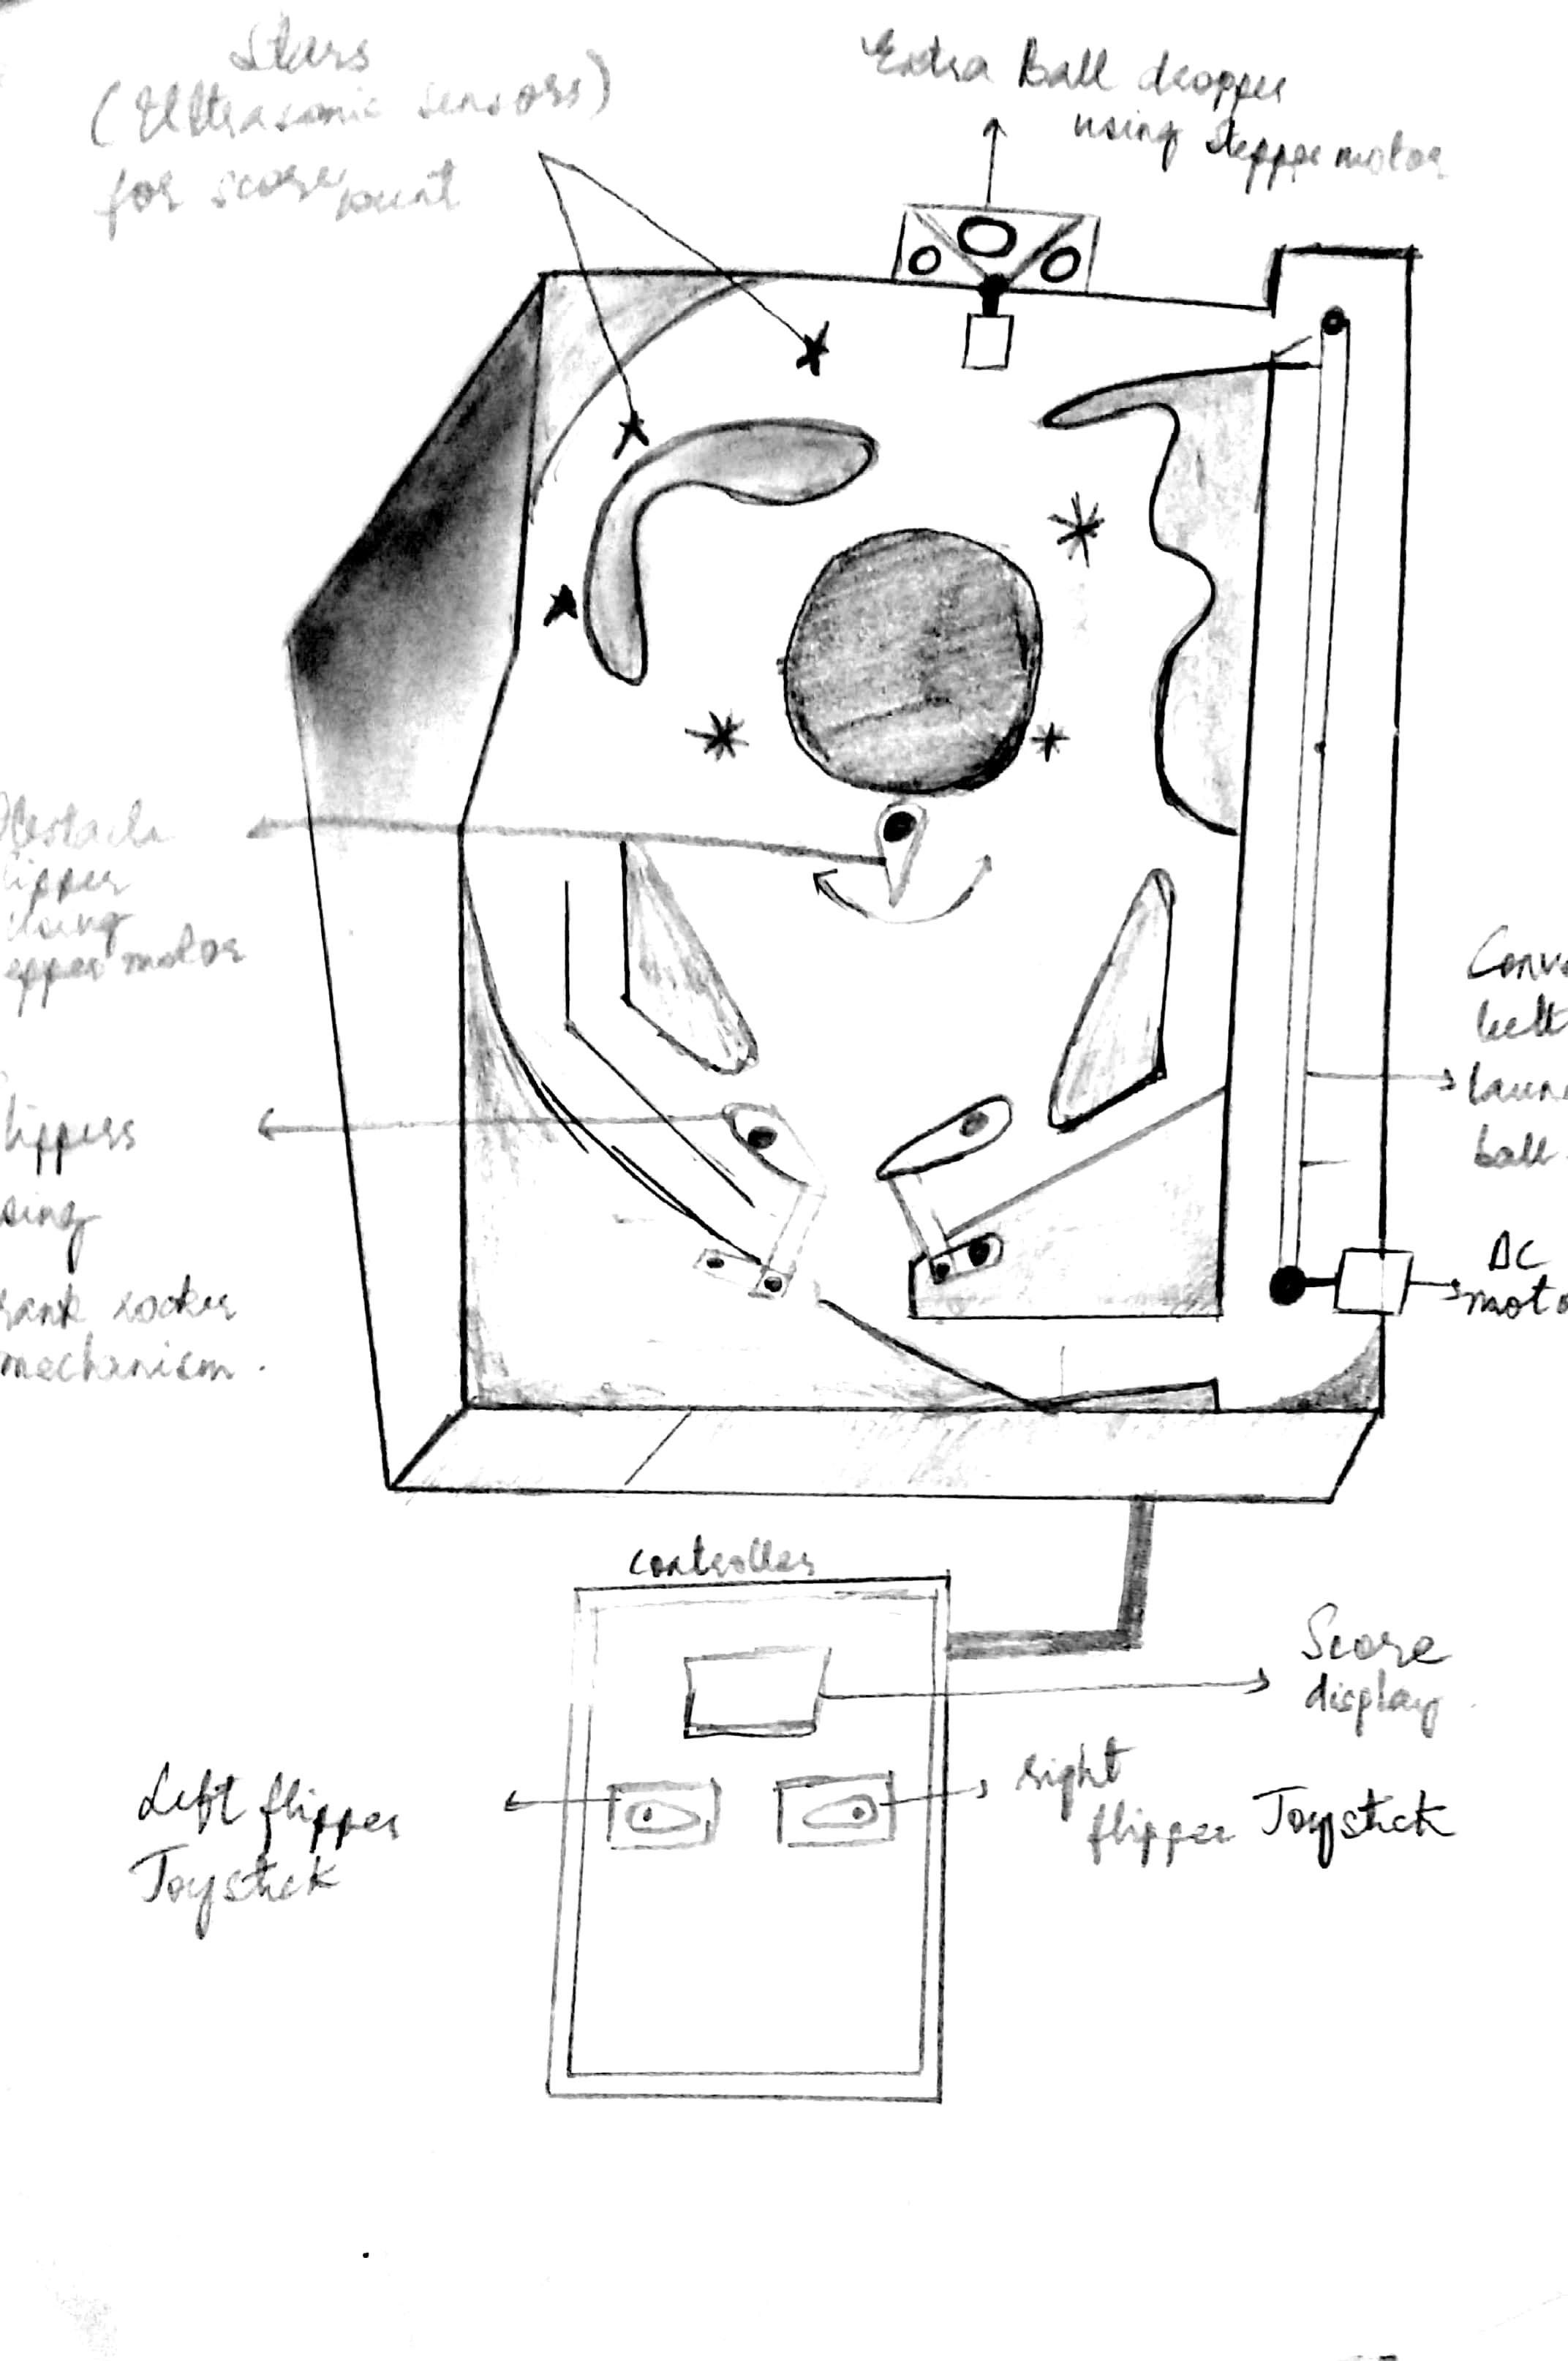 Stars
(Ultrasonic sensors)
for score count
Extra Ball dropper
using stepper motor
Obstacle
lipper
using
epper motor
lippers
sing
rank rocker
mechanism.
Conv
belt
laun
ball
DC
moto
controller
Score
display
Left flipper
Joystick
right
flipper Joystick